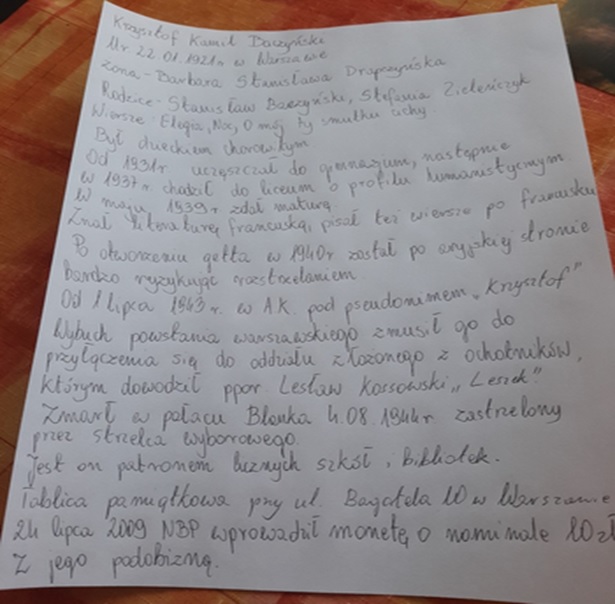 Krzysztof Kamil Baczyński
Ur 22.01.1921r w Warszawie
żona - Barbara Stanisława Drapczyńska
Rodzice - Stanisław Baczyński, Stefania Zieleńczyk
Wiersze: Elegia, Noc, O mój ty smutku cichy.
Był dzieckiem chorowitym
Od 1931r. uczęszczał do gimnazjum, następnie
w 1937r. chodził do liceum o profilu humanistycznym
W maju 1939r zdał maturę.
Znał literaturę francuską, pisał też wiersze po francusku
Po otworzeniu getta w 1940r został po aryjskiej stronie
bardzo ryzykując rozstrzelaniem
Od 1 lipca 1943r. w A.K. pod pseudonimem „Krzysztof”
Wybuch powstania warszawskiego zmusił go do
przyłączenia się do oddziału złożonego z ochotników,
którym dowodził ppor. Lesław Kossowski „Leszek”
Zmarł w pałacu Blanka 4.08.1944r. zastrzelony
przez strzelca wyborowego.
Jest on patronem licznych szkół i bibliotek.
Tablica pamiątkowa przy ul. Bagatela 10 w Warszawie
24 lipca 2009 NBP wprowadził monetę o nominale 10 zł
Z jego podobizną.